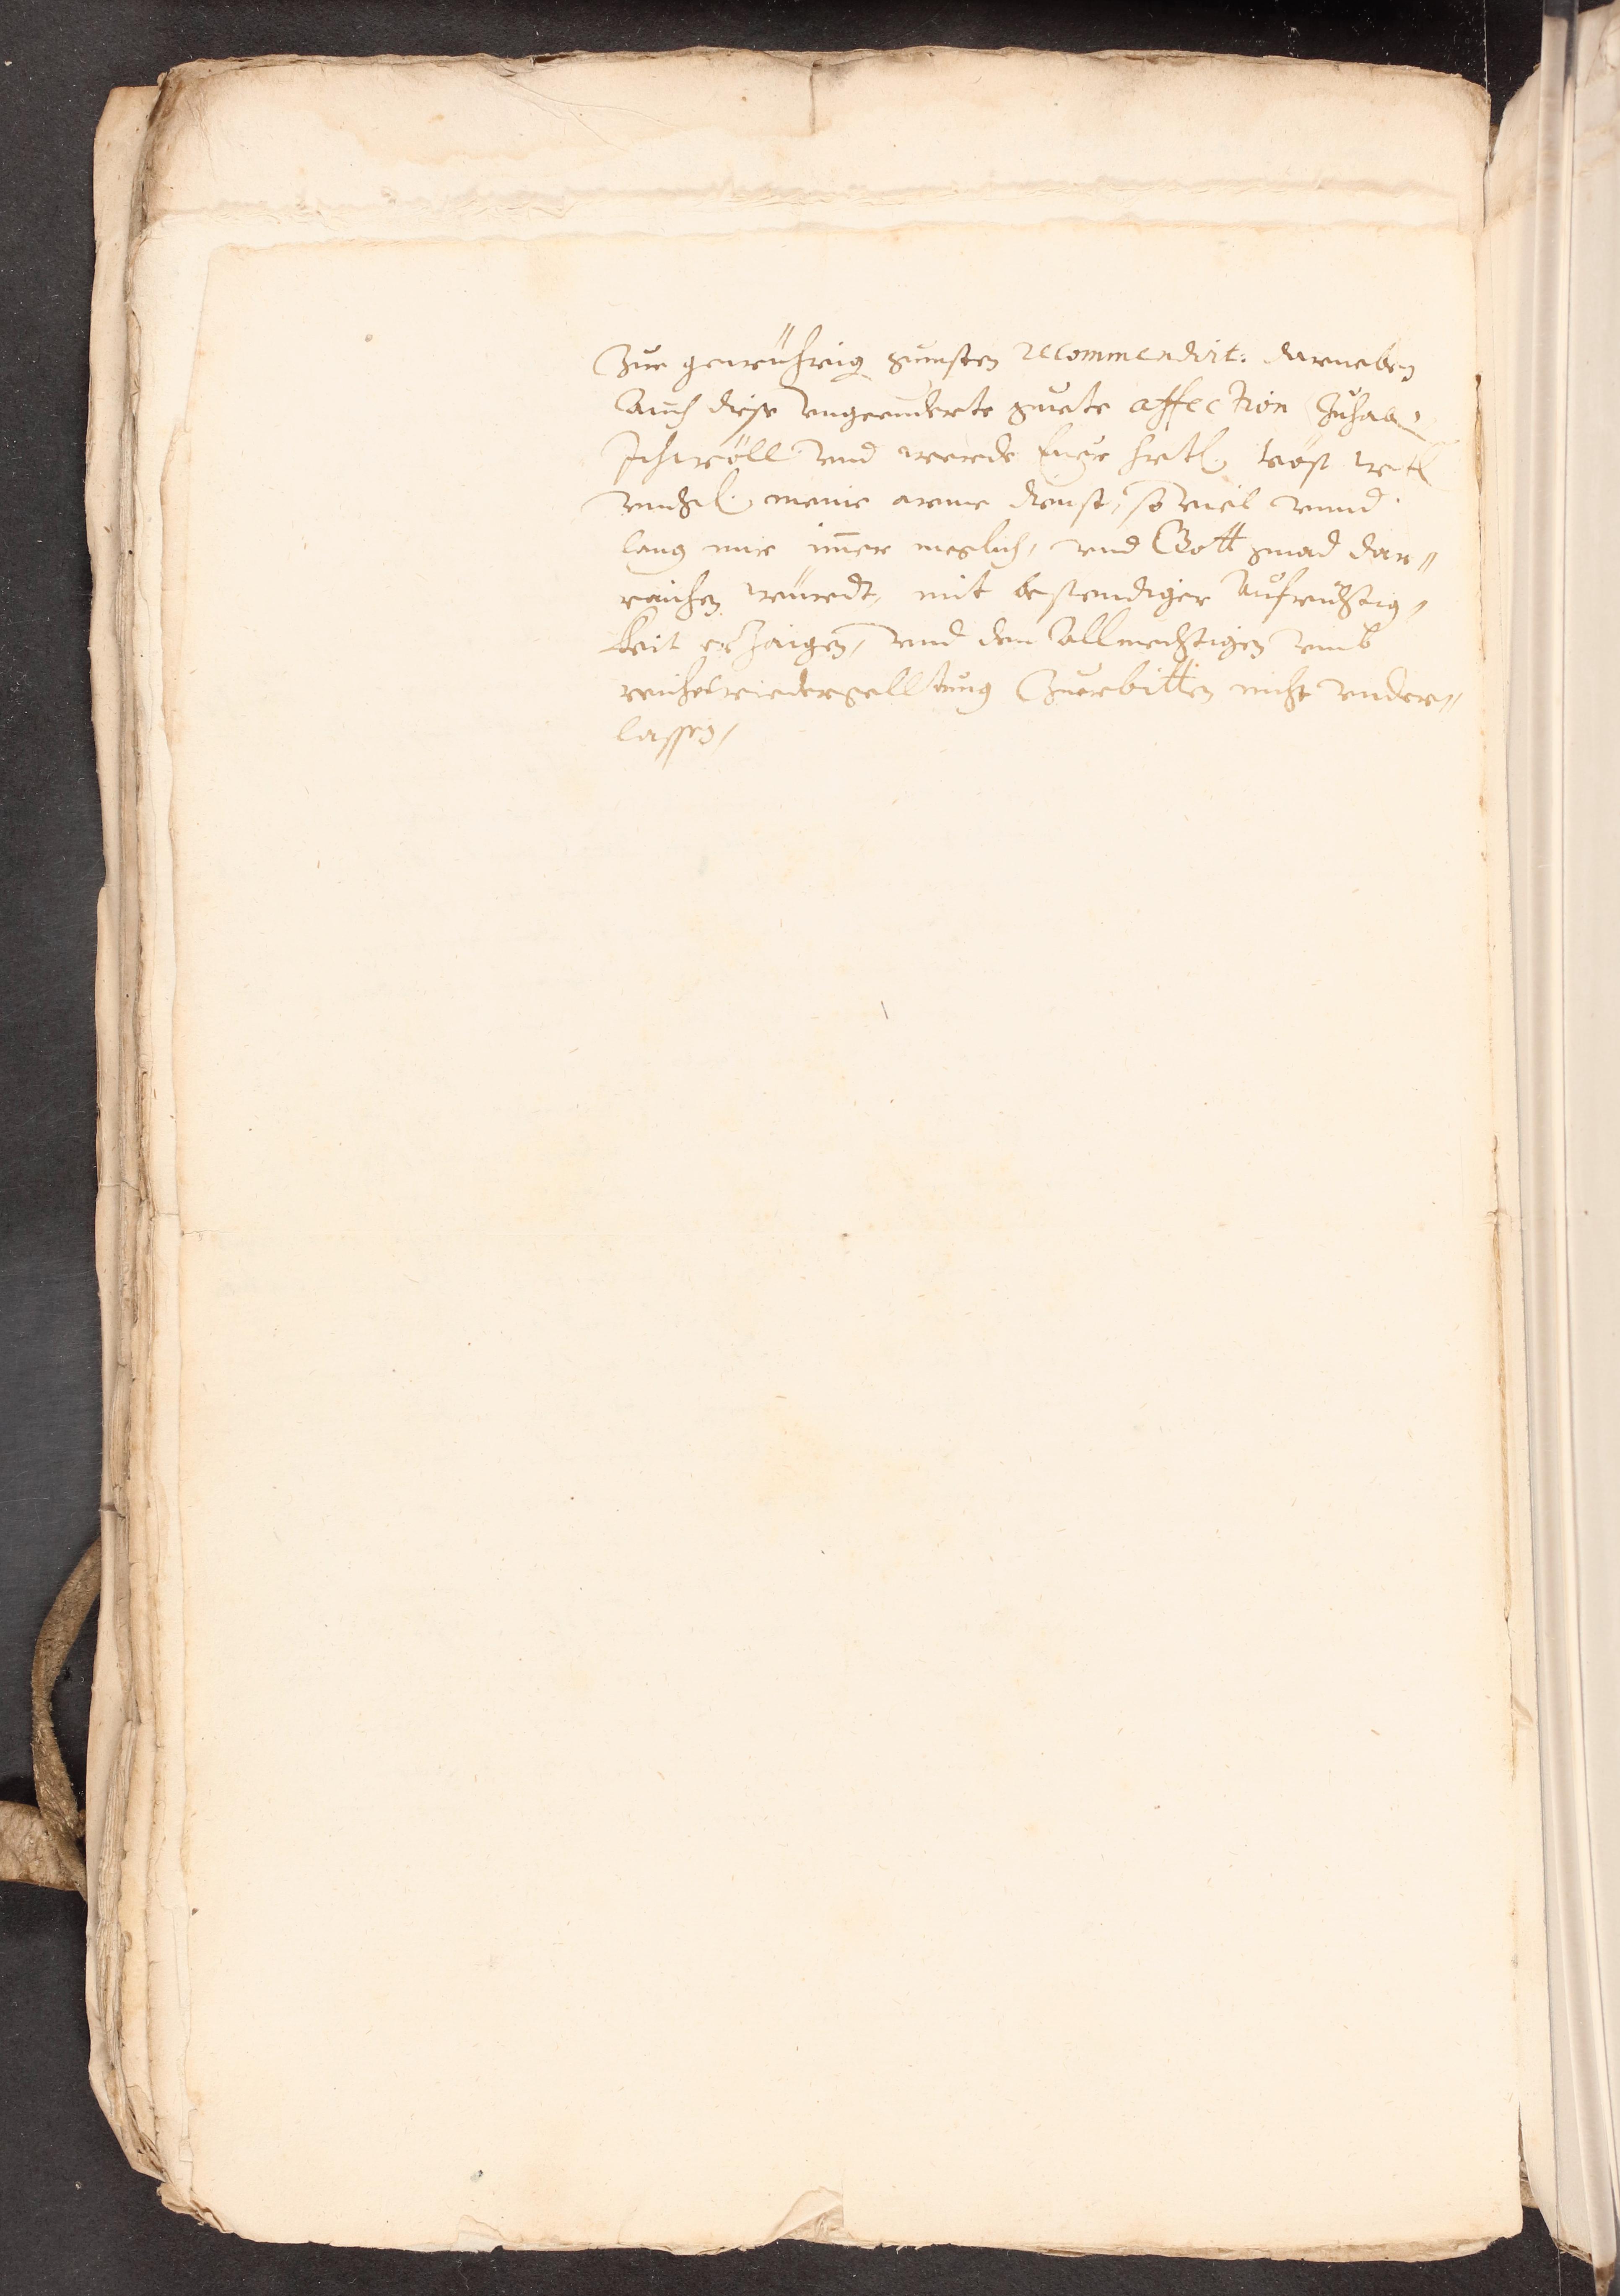 Zue gewührig gunsten recommendirt: darneben
Auch diese vngeenderte guete affection Zuhaben
Ich wöll vnd werde Euer hrtl. vöst
meine arme dienst, so viel vnnd
lang mir im̄er meglich, vnd Gott gnad dar„
raichen würdt, mit bestendiger Aufrichtig„
keit erZaigen, vnd den Allmechtigen vmb
reiche wiedergelltung Zuerbitten nicht vnder„
lassen,